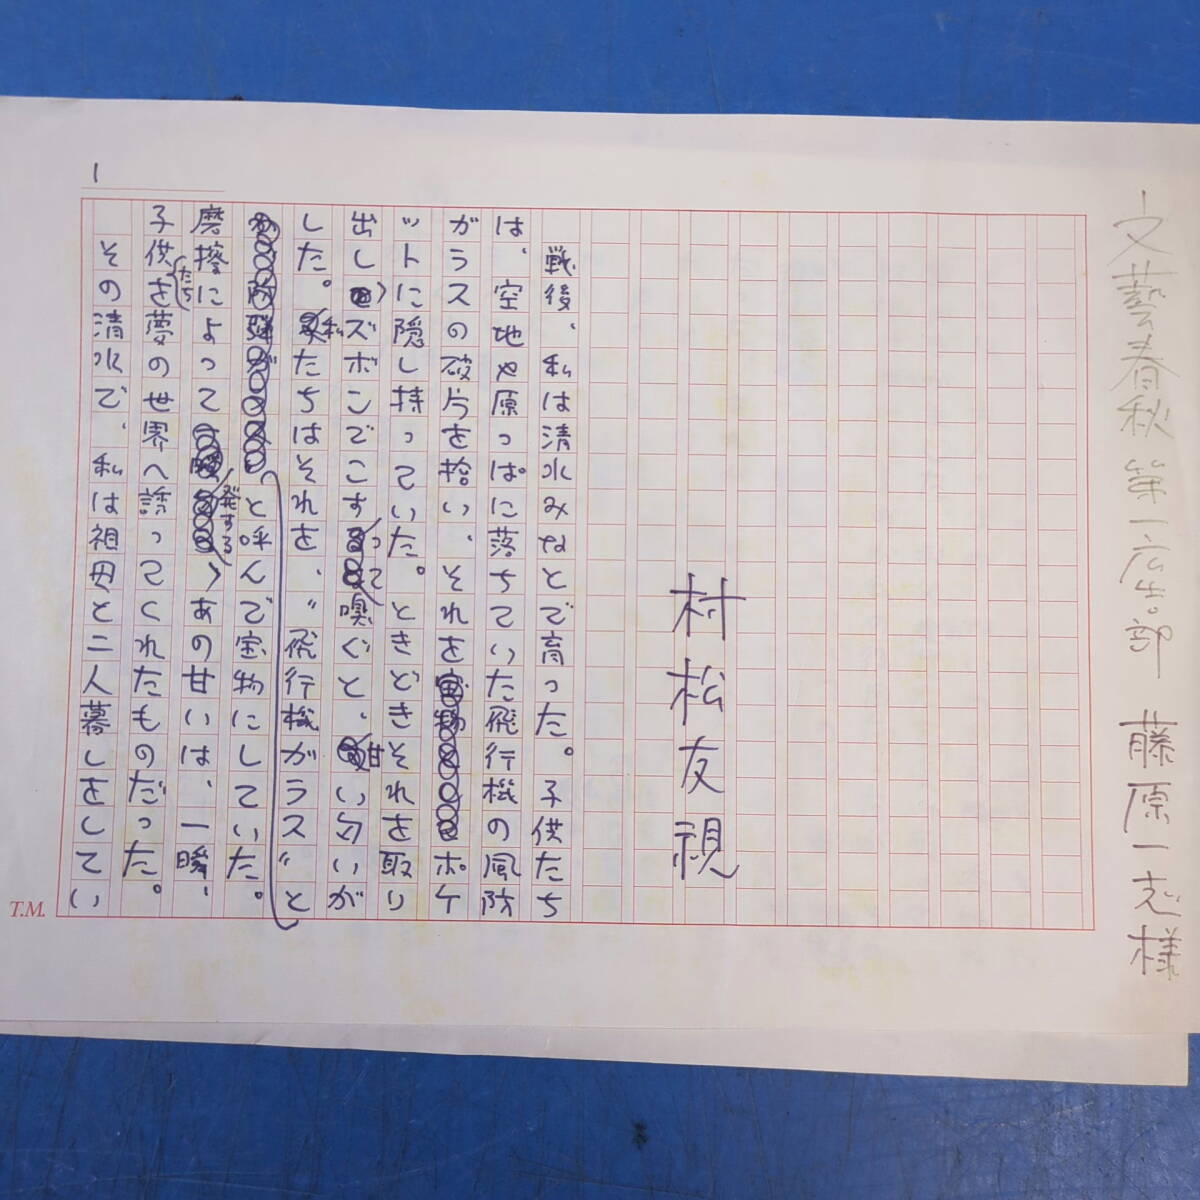 文藝春秋 第一広告部 藤原一志様
村松友視
戦後、私は清水みなとで育った。子供たち
は、空地や原っぱに落ちていた飛行機の風防
ガラスの破片を拾い、それをポケ
ットに隠し持っていた。ときどきそれを取り
出し、ズボンでこすって嗅ぐと、甘い匂いが
した。私たちはそれを、〝飛行機ガラス〟と
と呼んで宝物にしていた。
磨擦によって発する、あの甘いは、一瞬、
子供たちを夢の世界へ誘ってくれたものだった。
その清水で、私は祖母と二人暮しをしてい
1
T.M.